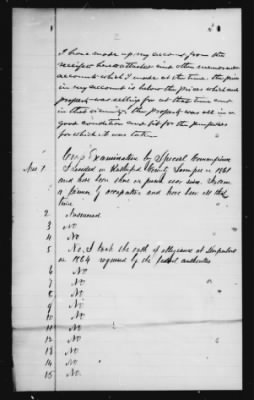 2
I have made up my account from the
receipts hereto attached and other memorandum
accounts which I made at the time. the price
in my account is below the prices which such
property was selling for at that time and
in that vicinity, & the property was all in a
good condition and fit for the purposes
for which it was taken
Cross Examination by Special Commissioner
Ans. 1 I resided in County Tennessee in 1861
and have been there or near ever since. I am
a farmer by occupation and have been all this
time
2 Answered
3 no
4 No
5 No. I took the oath of allegiance at
in 1864 required by the federal authorities
6 No
7 No
8 No
9 No
10 No
11 No
12 No
13 No
14 No
15 No